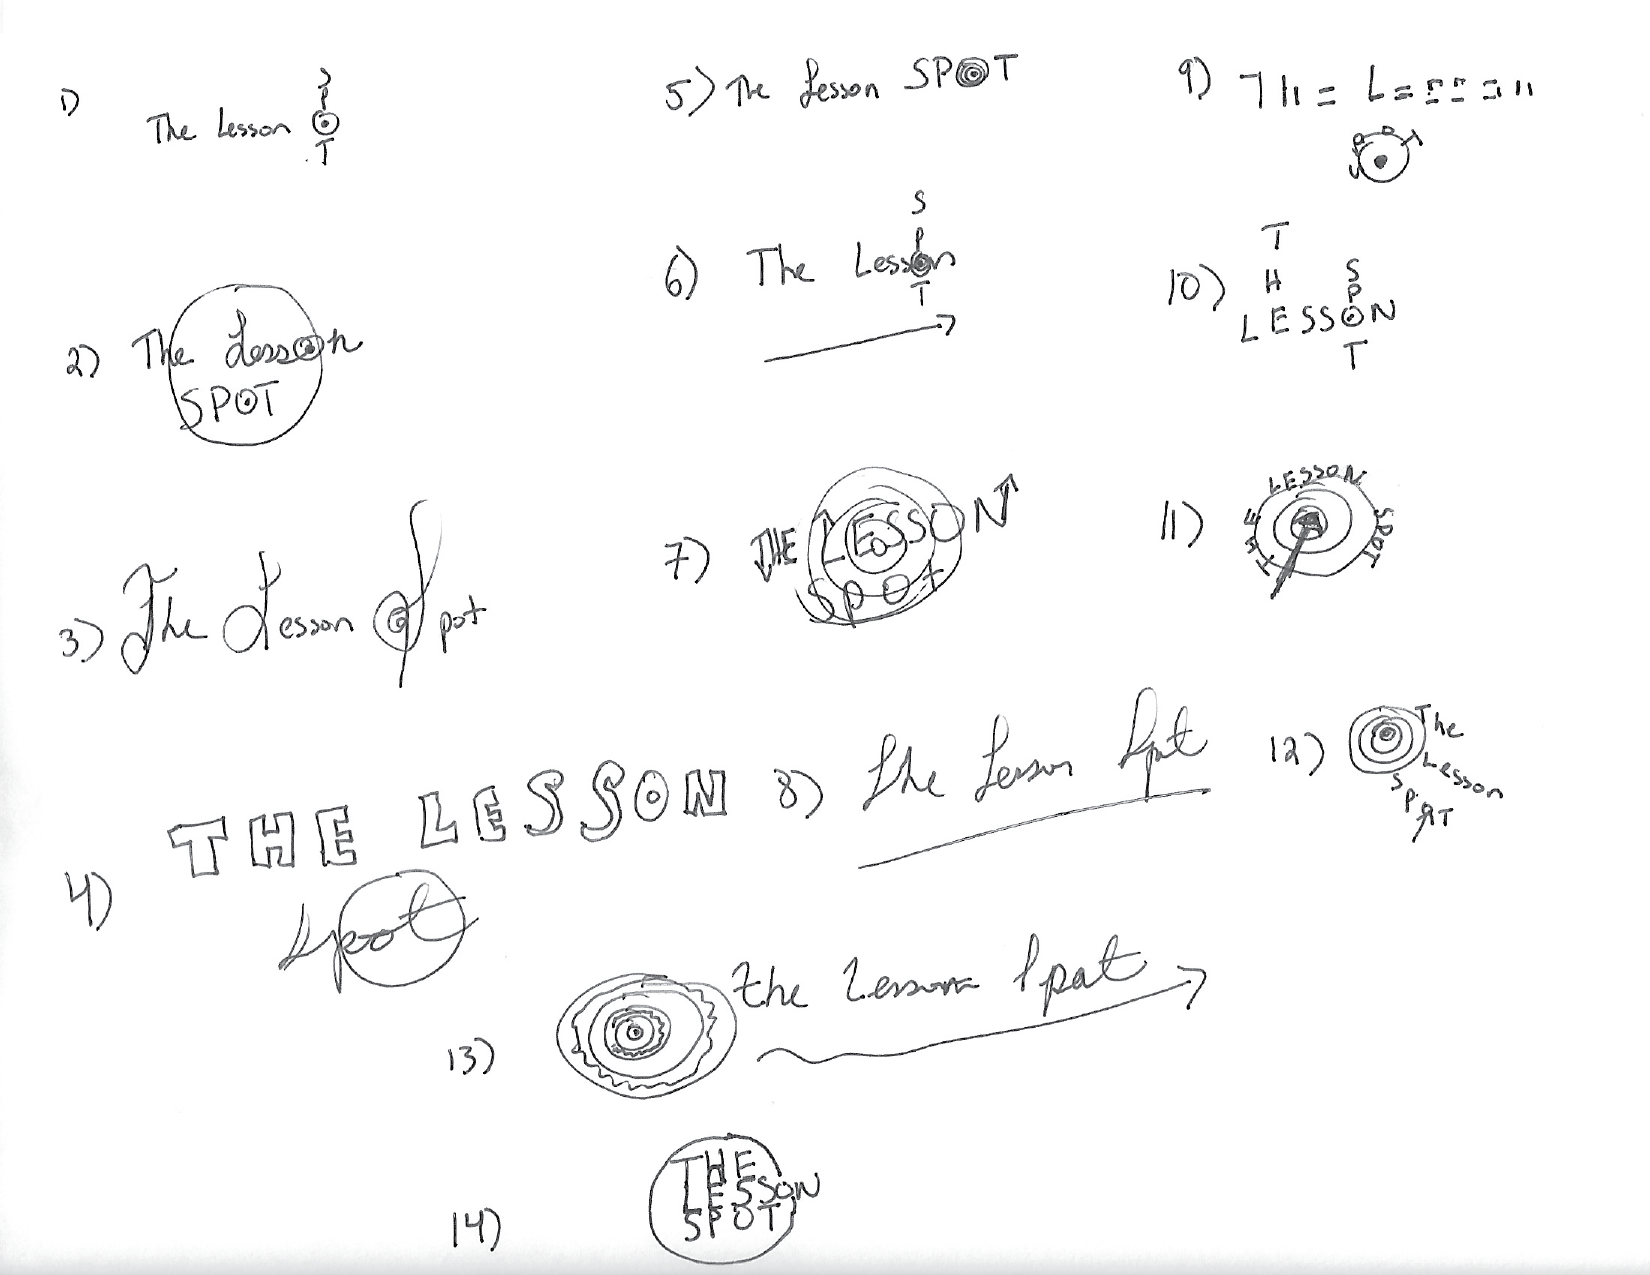 1) The Lesson SPOT
2) The Lesson
SPOT
3) The Lesson Spot
4) THE LESSON
Spot
5) The Lesson SPOT
6) The Lesson
SPOT
7) THE LESSON
SPOT
8) The Lesson Spot
9) THE LESSON
SPOT
10) THE
LESSON
SPOT
11) THE LESSON SPOT
12) The
Lesson
SPOT
13) The Lesson Spot
14) THE
LESSON
SPOT